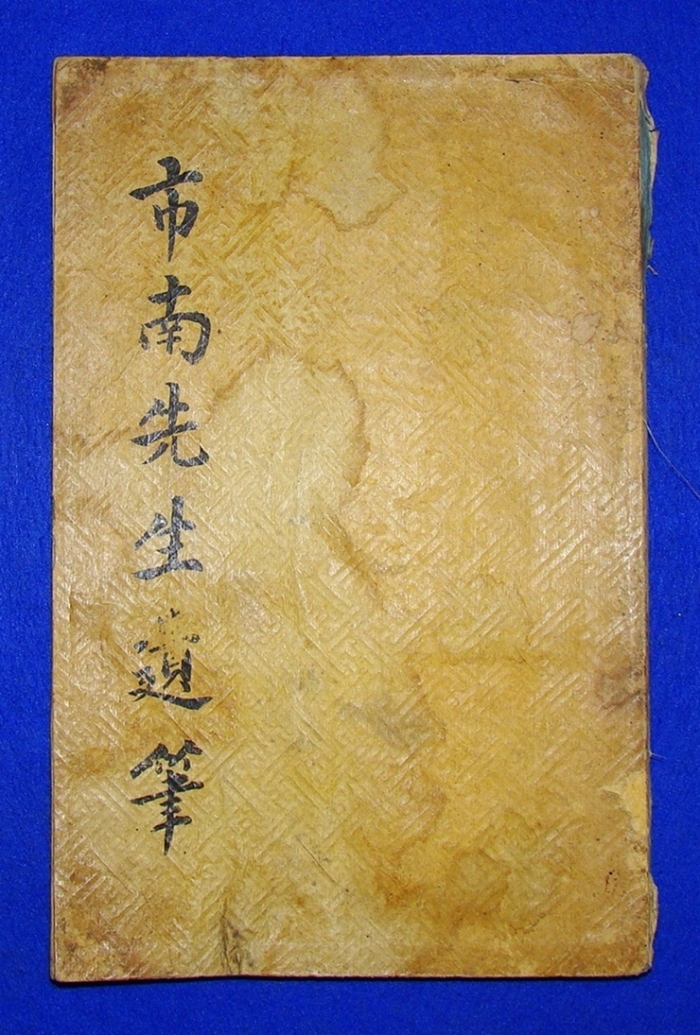 市南先生遺筆